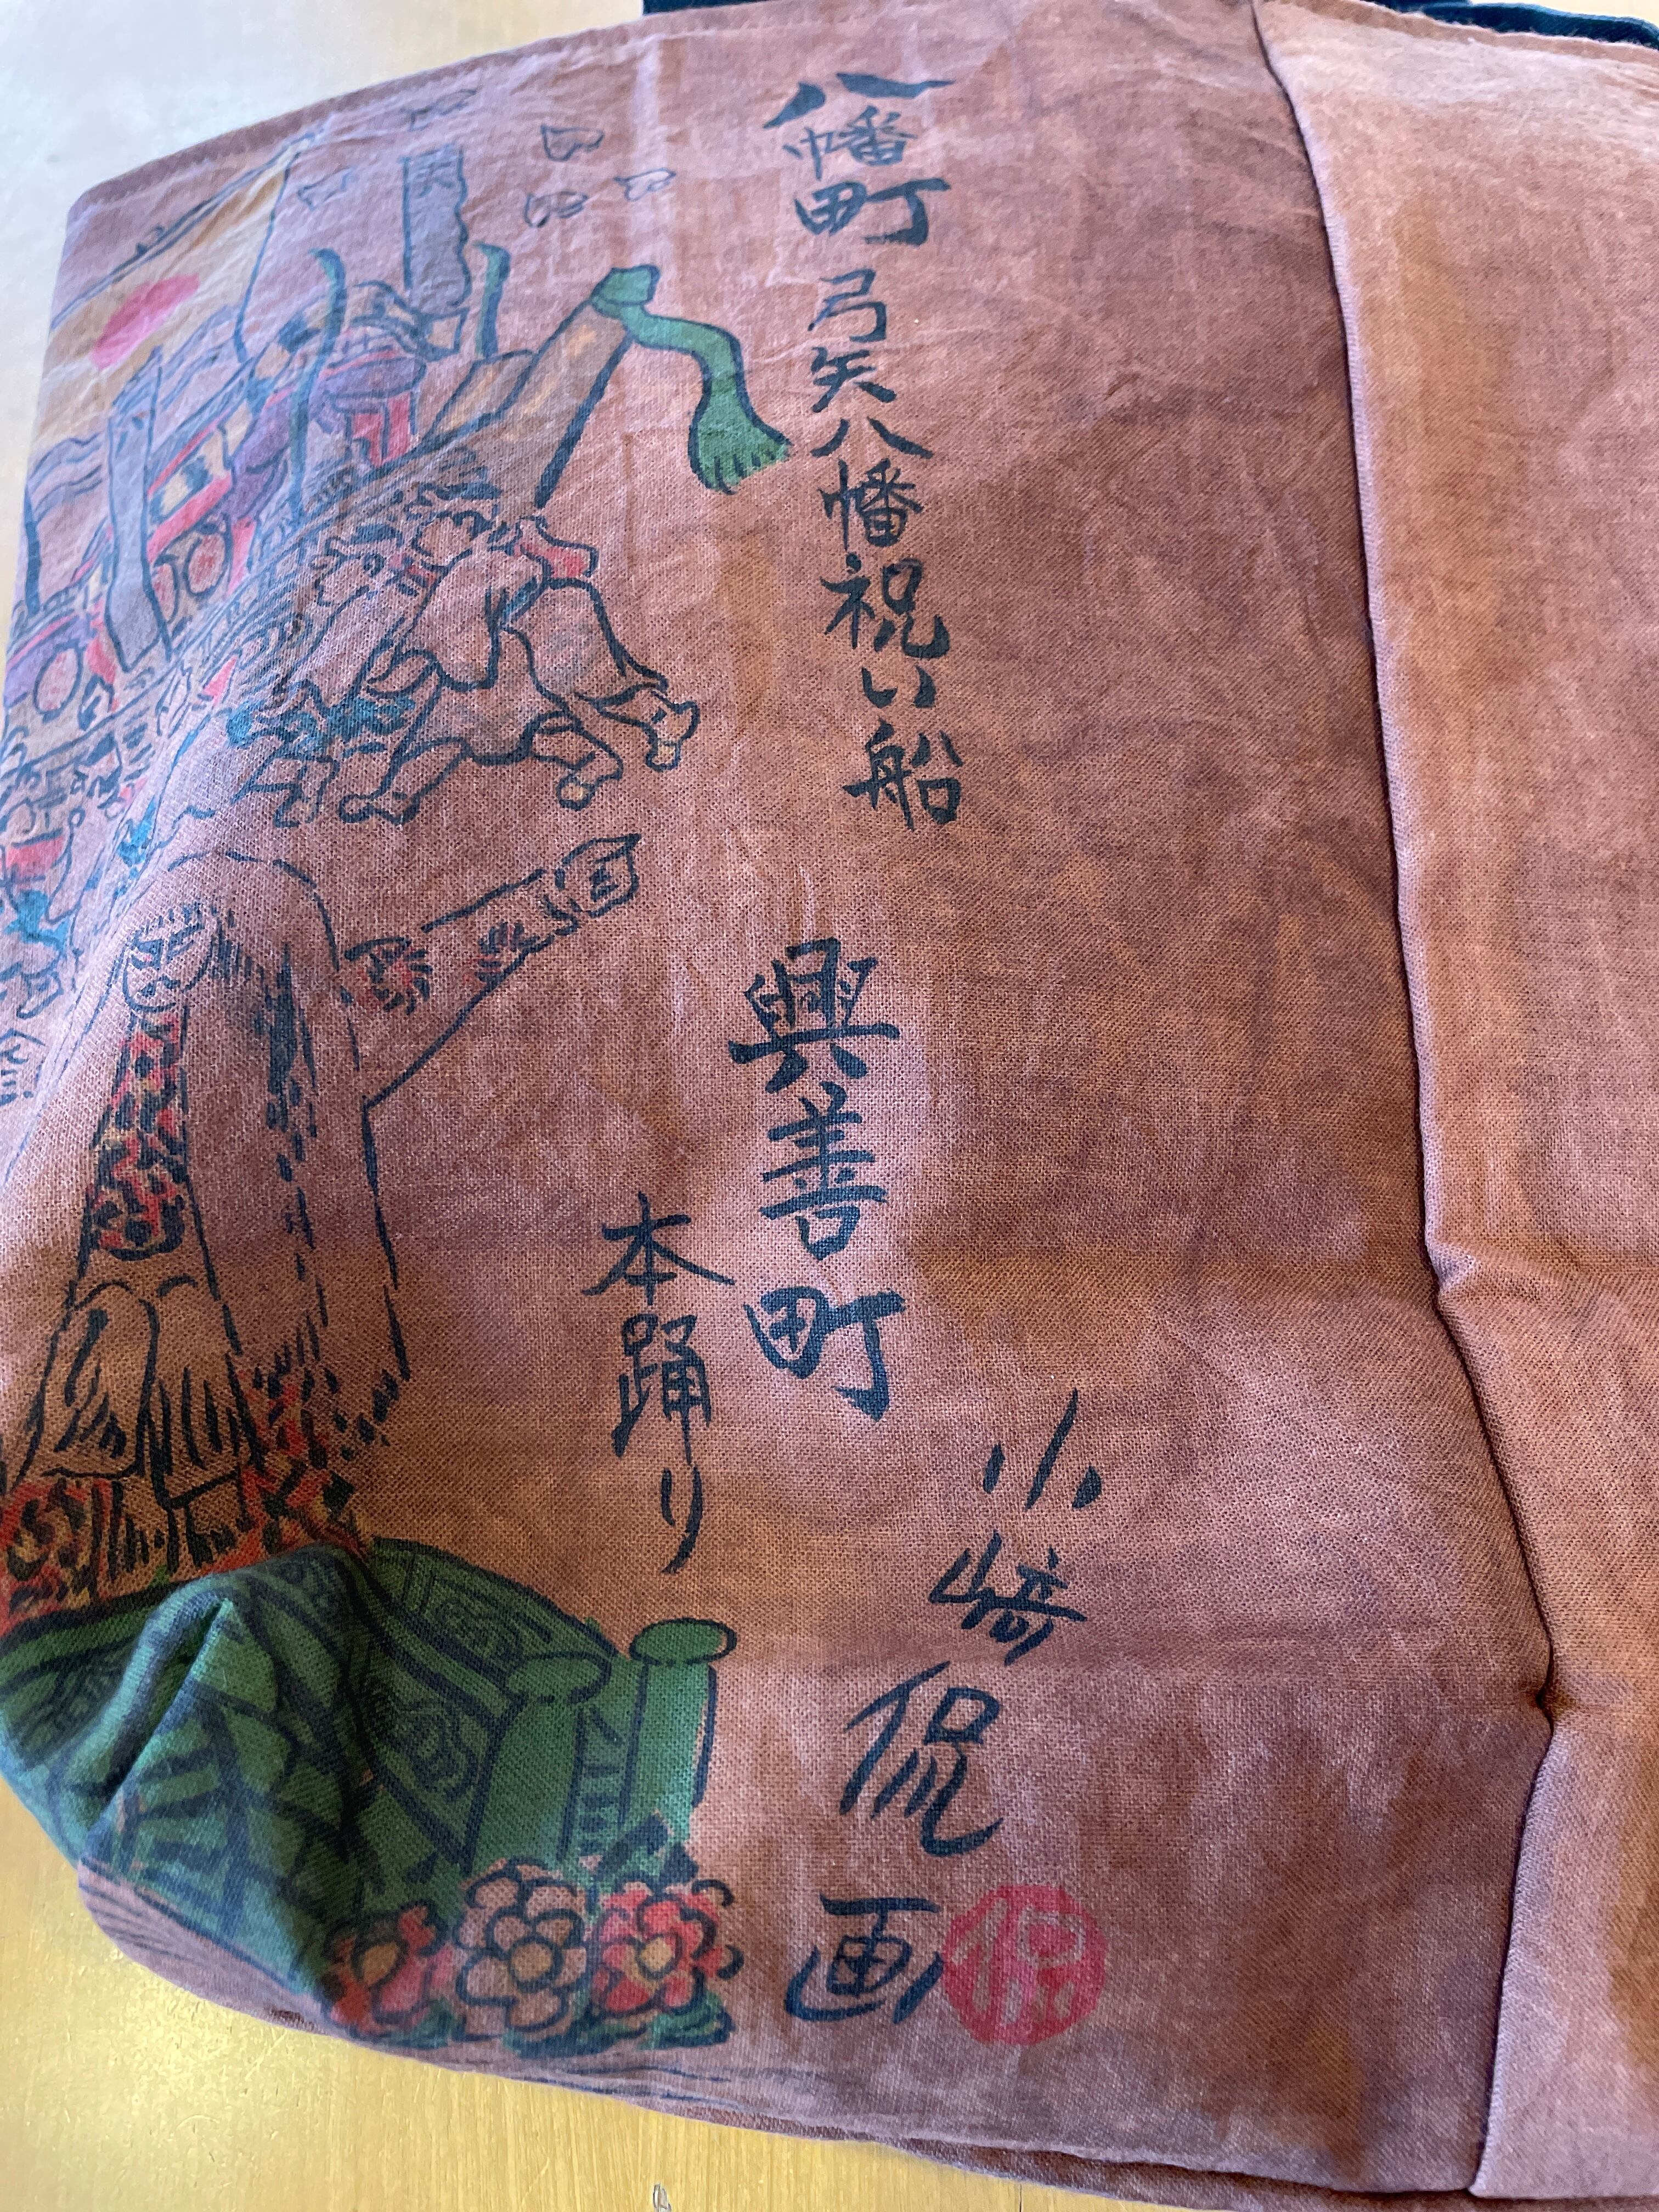 八幡町 弓矢八幡祝い船
興善町
本踊り
小崎侃画
侃